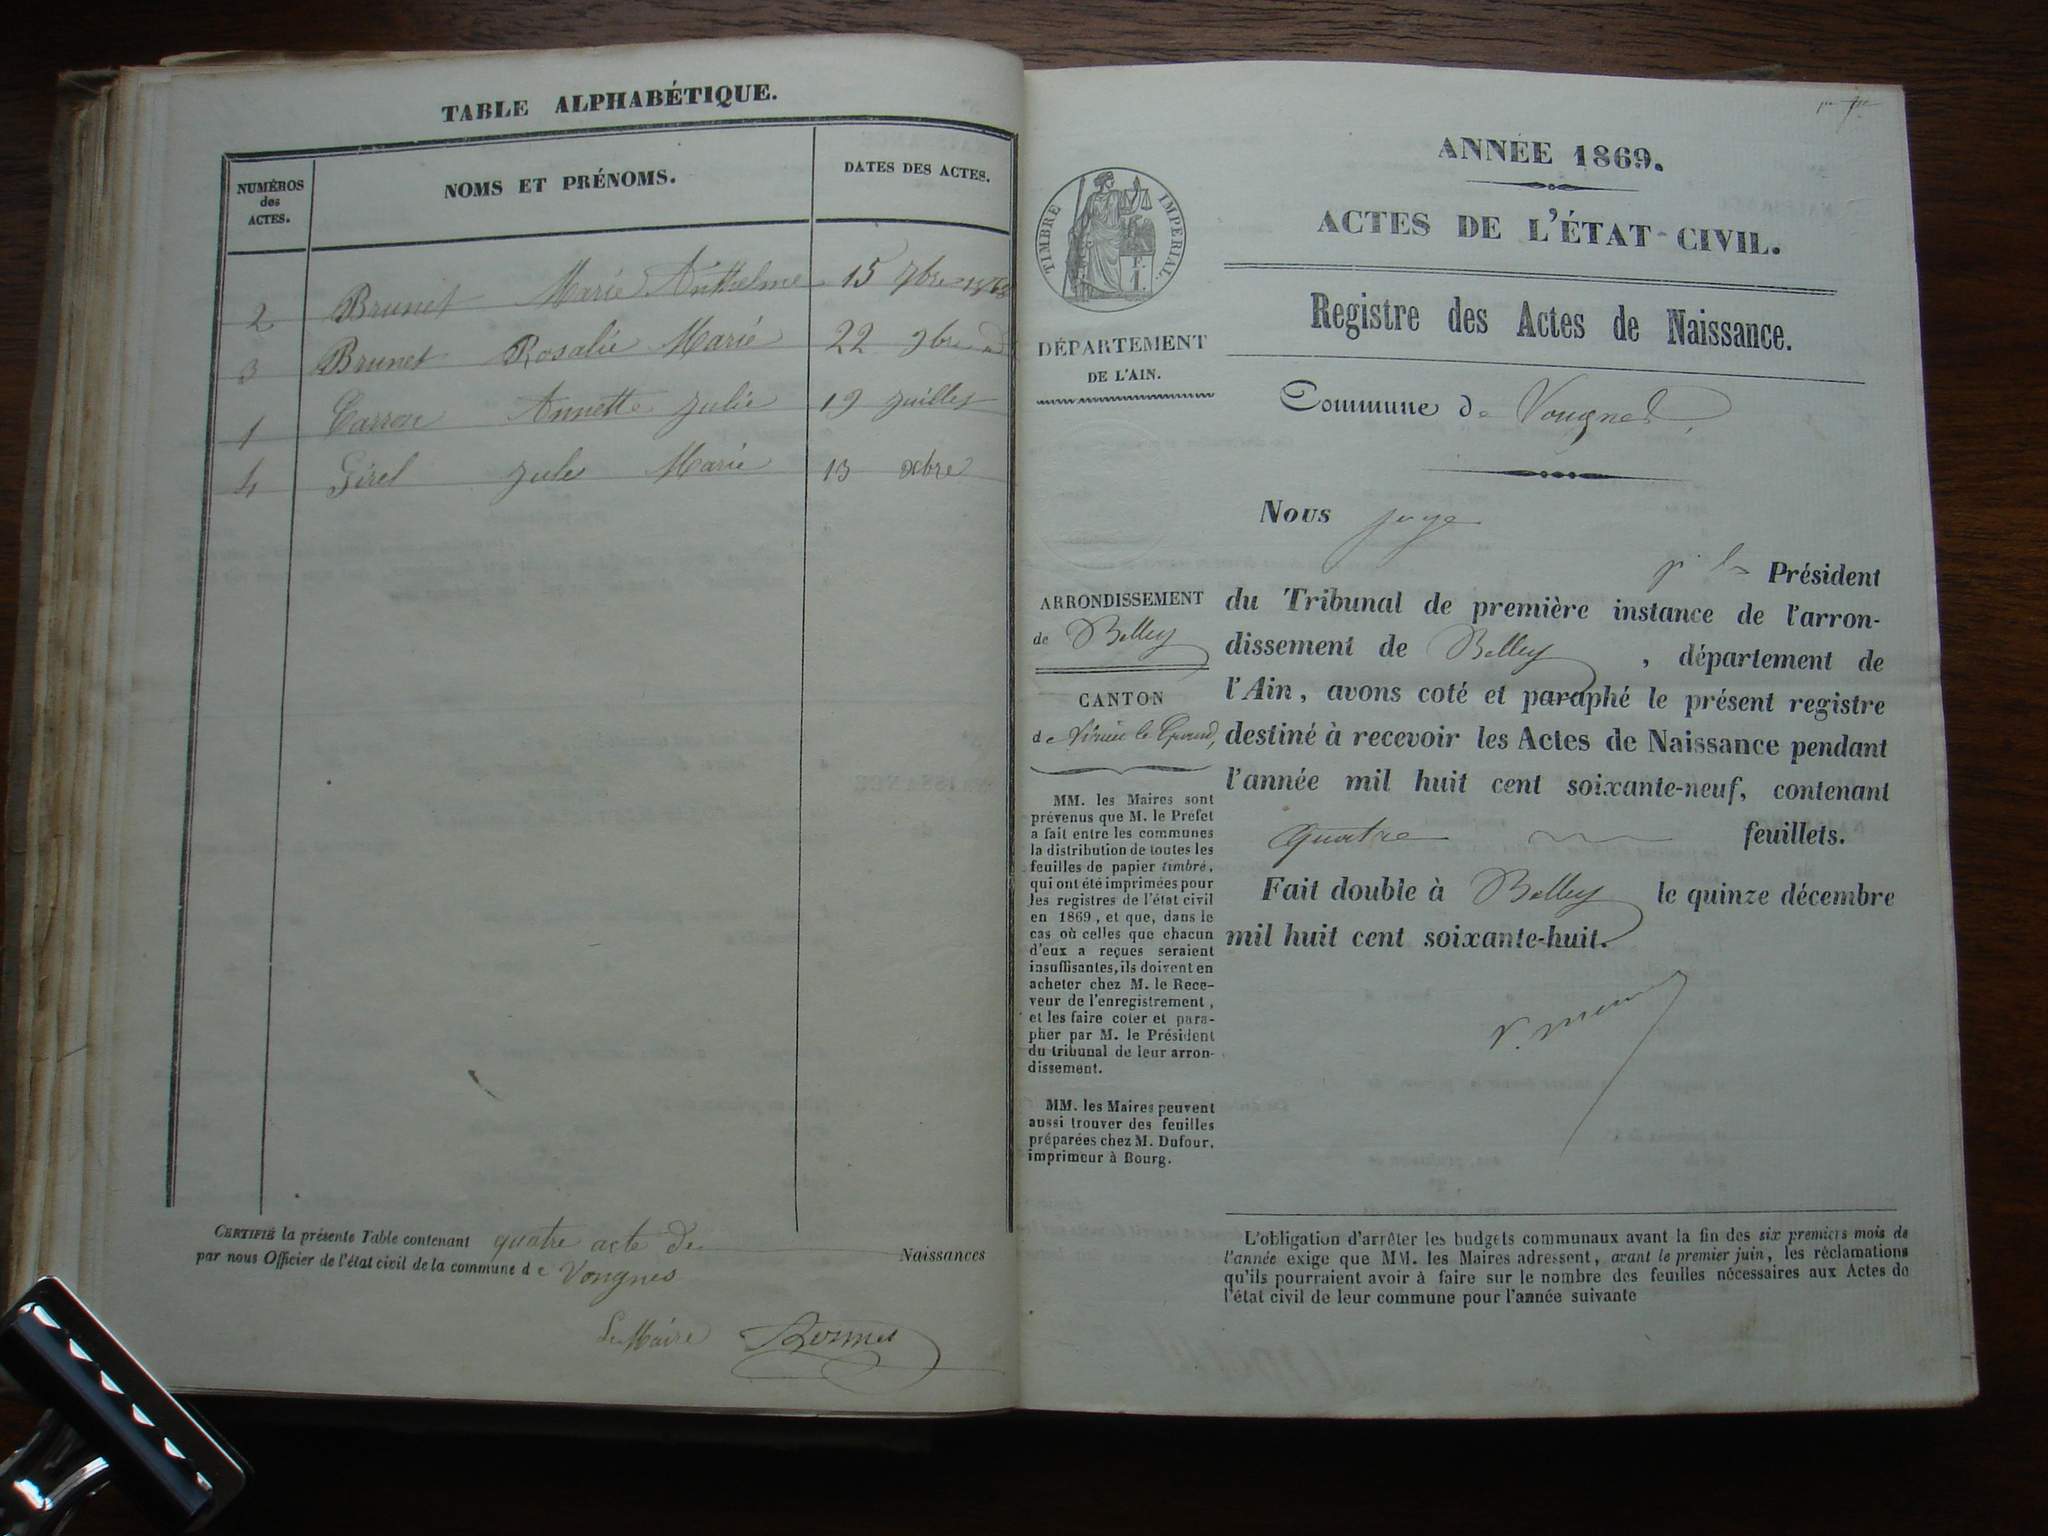 TABLE ALPHABÉTIQUE.
NUMÉROS des ACTES.
NOMS ET PRÉNOMS.
DATES DES ACTES.
2 Brunet Marie Anthelme 15 7bre 1868
3 Brunet Rosalie Marie 22 9bre
1 Carron Annette Julie 19 Juillet
4 Girel Jules Marie 13 xbre
CERTIFIÉ la présente Table contenant quatre acte de Naissances
par nous Officier de l'état civil de la commune de Vongnes
Le Maire
ANNÉE 1869.
ACTES DE L'ÉTAT-CIVIL.
Registre des Actes de Naissance.
Commune de Vongnes
TIMBRE IMPÉRIAL.
F.
1.
DÉPARTEMENT
DE L'AIN.
ARRONDISSEMENT
de Belley
CANTON
de Virieu le Grand,
MM. les Maires sont
prévenus que M. le Préfet
a fait entre les communes
la distribution de toutes les
feuilles de papier timbré,
qui ont été imprimées pour
les registres de l'état civil
en 1869, et que, dans le
cas où celles que chacun
d'eux a reçues seraient
insuffisantes, ils doivent en
acheter chez M. le Rece-
veur de l'enregistrement,
et les faire coter et para-
pher par M. le Président
du tribunal de leur arron-
dissement.
MM. les Maires peuvent
aussi trouver des feuilles
préparées chez M. Dufour,
imprimeur à Bourg.
Nous juge
pr le Président
du Tribunal de première instance de l'arron-
dissement de Belley, département de
l'Ain, avons coté et paraphé le présent registre
destiné à recevoir les Actes de Naissance pendant
l'année mil huit cent soixante-neuf, contenant
quatre feuillets.
Fait double à Belley le quinze décembre
mil huit cent soixante-huit.
L'obligation d'arrêter les budgets communaux avant la fin des six premiers mois de
l'année exige que MM. les Maires adressent, avant le premier juin, les réclamations
qu'ils pourraient avoir à faire sur le nombre des feuilles nécessaires aux Actes de
l'état civil de leur commune pour l'année suivante